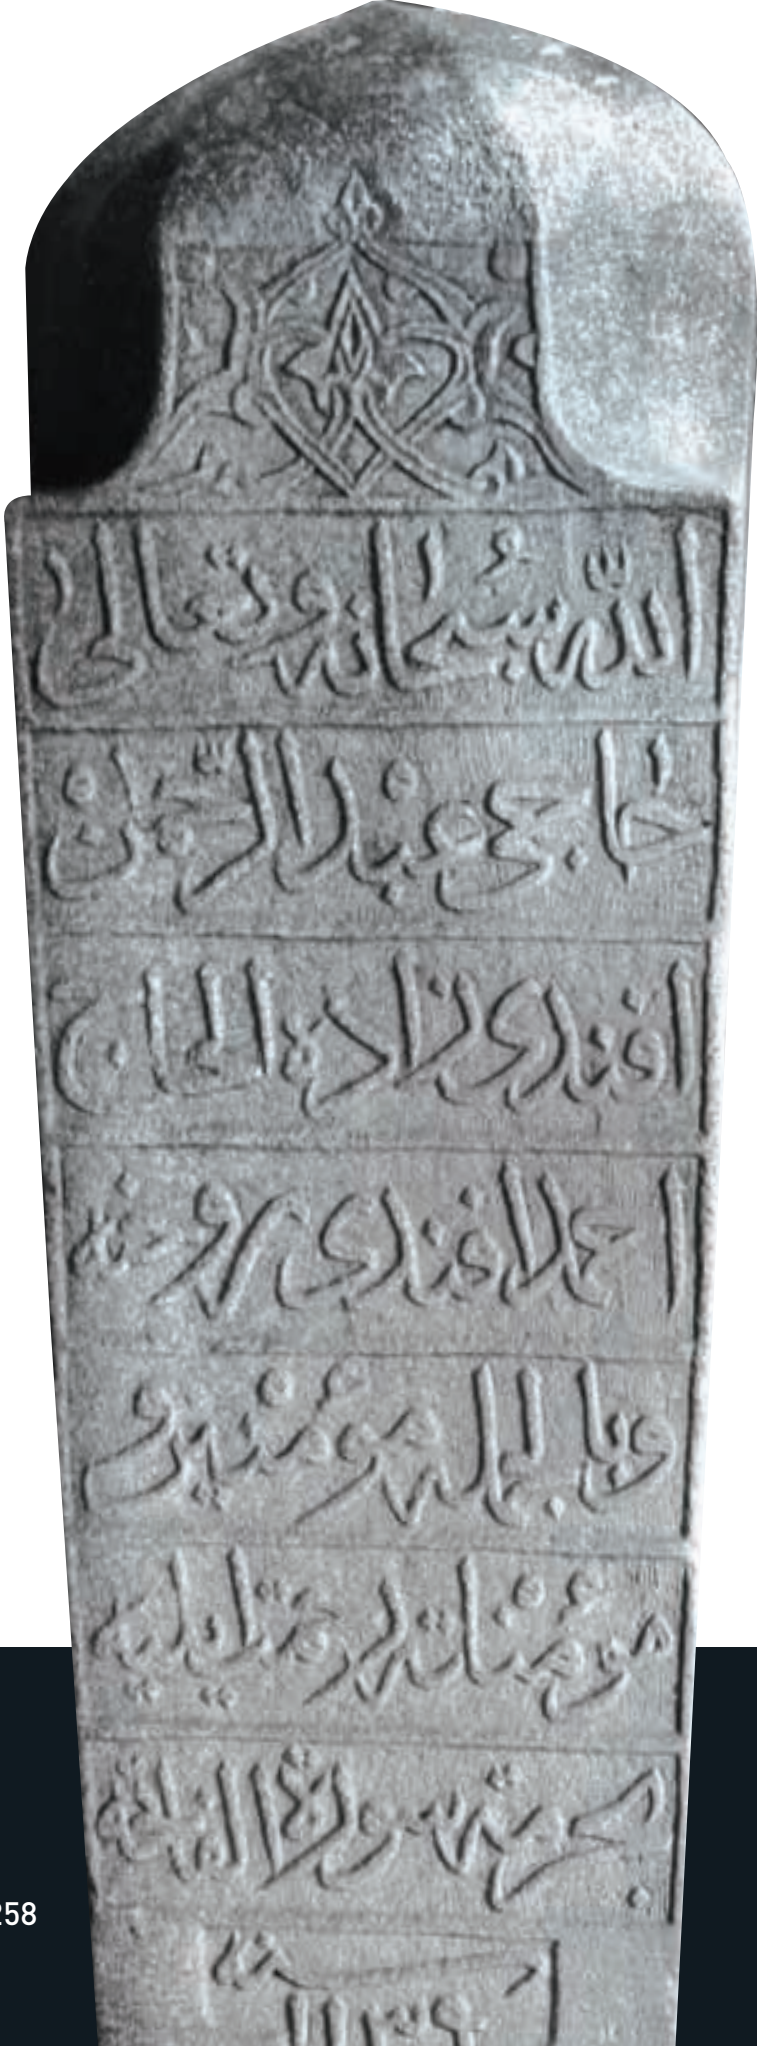 الله سبحانه وتعالى
حاجى عبد الرحمن
افندى زاده الحاج
احمد افندى روحنه
وبالجمله مؤمنين و
مؤمناته رحمت ايليه
بحرمة سورة الفاتحة
سنة
258